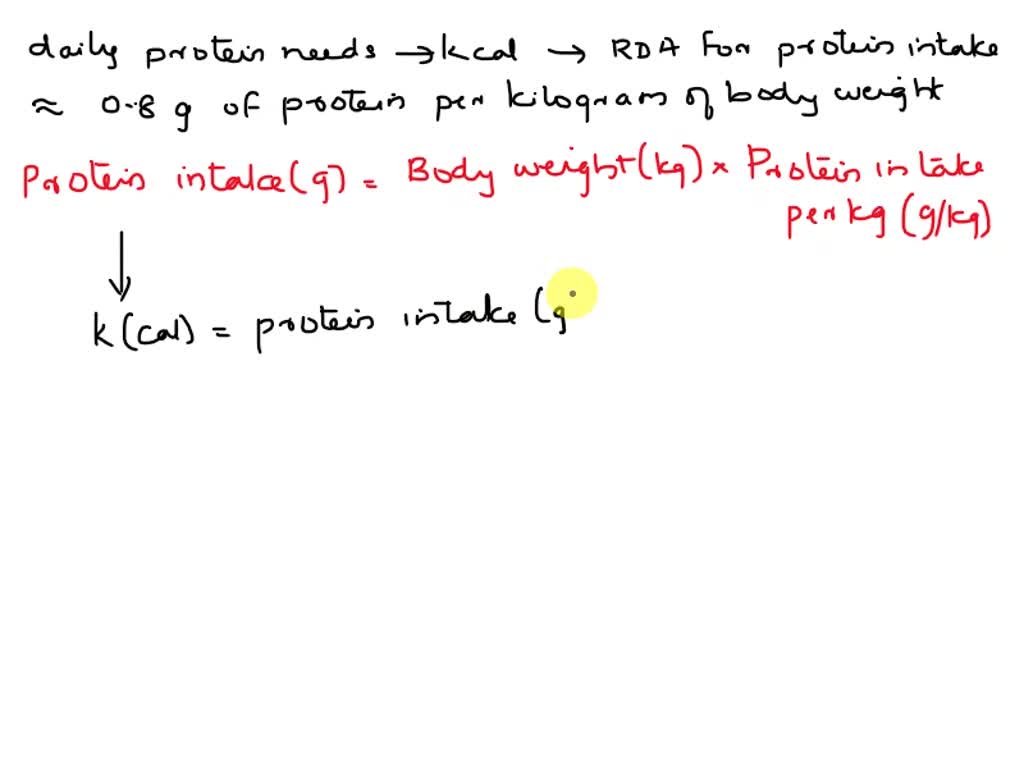 daily protein needs → kcal → RDA For protein intake
≈ 0.8 g of protein per kilogram of body weight
Protein intake (g) = Body weight (kg) × Protein intake
per kg (g/kg)
↓
k(cal) = protein intake (g